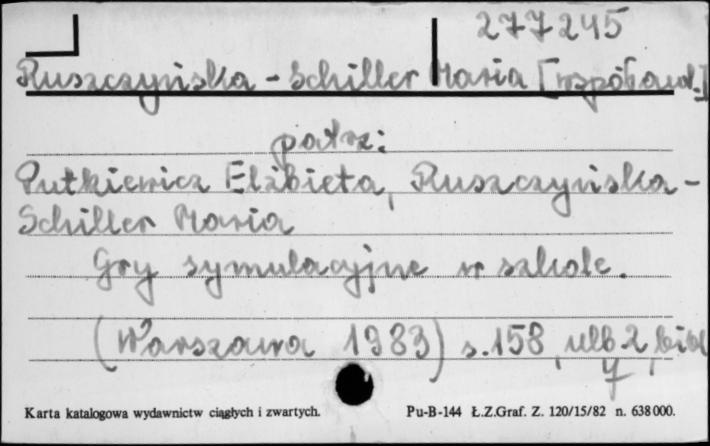 277245
Ruszczyńska-Schiller Maria [współaut.]
patrz:
Putkiewicz Elżbieta, Ruszczyńska-
Schiller Maria
Gry symulacyjne w szkole.
(Warszawa 1983) s. 158, nlb 2, bibl
Karta katalogowa wydawnictw ciągłych i zwartych.
Pu-B-144 Ł.Z.Graf. Z. 120/15/82 n. 638000.